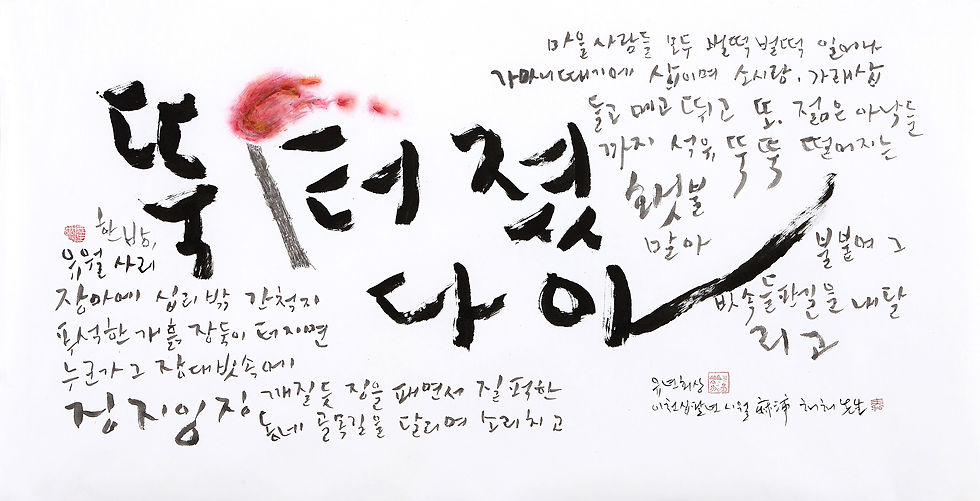 뚝 터졌
다아
한밤,
유월 사리
장마에 십리 밖 간척지
푸석한 개흙 장둑이 터지면
누군가 그 장대빗속에
징 지잉 징
깨질듯 징을 패면서 질퍽한
동네 골목길을 달리며 소리치고
마을 사람들 모두 벌떡벌떡 일어나
가마니때기에 삽이며 소시랑, 가래삽
들고 메고 뛰고 또, 젊은 아낙들
까지 석유, 뚝뚝 떨어지는
횃불
말아
불붙여 그
빗속 들판길을 내달
리고
유년회상
이천십팔년 시월